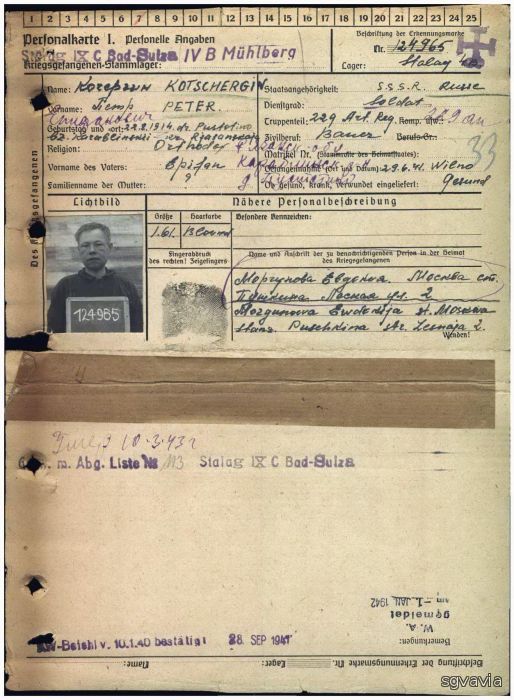 1 2 3 4 5 6 7 8 9 10 11 12 13 14 15 16 17 18 19 20 21 22 23 24 25
Personalkarte I. Personelle Angaben
Beschriftung der Erkennungsmarke
Stalag IX C Bad-Sulza IV B Mühlberg
Nr. 124965
Kriegsgefangenen-Stammlager:
Lager: Stalag
Des Kriegsgefangenen
Name: KOTSCHERGIN
Staatsangehörigkeit: S.S.S.R. Russe
Vorname: Петр PETER.
Dienstgrad: Soldat
Truppenteil: 229 Art. Reg. Komp. usw.:
Geburtstag und -ort: 22.8.1914
Zivilberuf: Bauer Berufs-Gr.:
Religion: Orthodox
Matrikel Nr. (Stammrolle des Heimatstaates)
33
Vorname des Vaters: Epifan
Gefangennahme (Ort und Datum): 29.6.41. Wilno
Familienname der Mutter: ?
Ob gesund, krank, verwundet eingeliefert: Gesund
Lichtbild
Nähere Personalbeschreibung
Größe
Haarfarbe
Besondere Kennzeichen:
1.61.
Blond
Fingerabdruck
des rechten! Zeigefingers
Name und Anschrift der zu benachrichtigenden Person in der Heimat
des Kriegsgefangenen
124965
Моргунова Евдокия. Москва ст.
Пушкина Лесная ул. 2
Morgunowa Ewdokija st. Moskwa
Stanz. Puschkina str. Lesnaja 2.
Wenden!
10.3.43г
m. Abg. Liste № 113 Stalag IX C Bad-Sulza
W. A.
gemeldet
am -1. JAN. 1942
Bemerkungen:
Befehl v. 10.1.40 bestätigt 28. SEP 1941
Name:
Lager:
Beschriftung der Erkennungsmarke Nr.
sgvavia